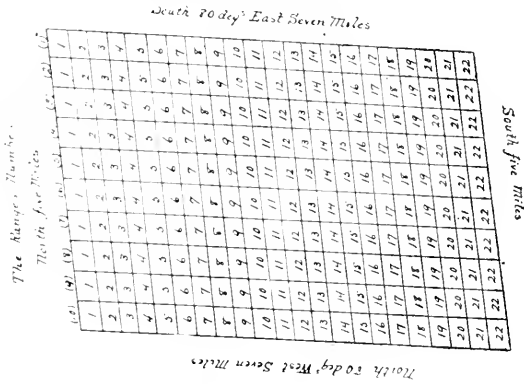 South 80 deg^s East Seven Miles
The Ranges Number.
North five Miles
South five Miles
(1) 1 2 3 4 5 6 7 8 9 10 11 12 13 14 15 16 17 18 19 20 21 22
(2) 1 2 3 4 5 6 7 8 9 10 11 12 13 14 15 16 17 18 19 20 21 22
1 2 3 4 5 6 7 8 9 10 11 12 13 14 15 16 17 18 19 20 21 22
1 2 3 4 5 6 7 8 9 10 11 12 13 14 15 16 17 18 19 20 21 22
1 2 3 4 5 6 7 8 9 10 11 12 13 14 15 16 17 18 19 20 21 22
(6) 1 2 3 4 5 6 7 8 9 10 11 12 13 14 15 16 17 18 19 20 21 22
(7) 1 2 3 4 5 6 7 8 9 10 11 12 13 14 15 16 17 18 19 20 21 22
(8) 1 2 3 4 5 6 7 8 9 10 11 12 13 14 15 16 17 18 19 20 21 22
(9) 1 2 3 4 5 6 7 8 9 10 11 12 13 14 15 16 17 18 19 20 21 22
(10) 1 2 3 4 5 6 7 8 9 10 11 12 13 14 15 16 17 18 19 20 21 22
North 80 deg^s West Seven Miles